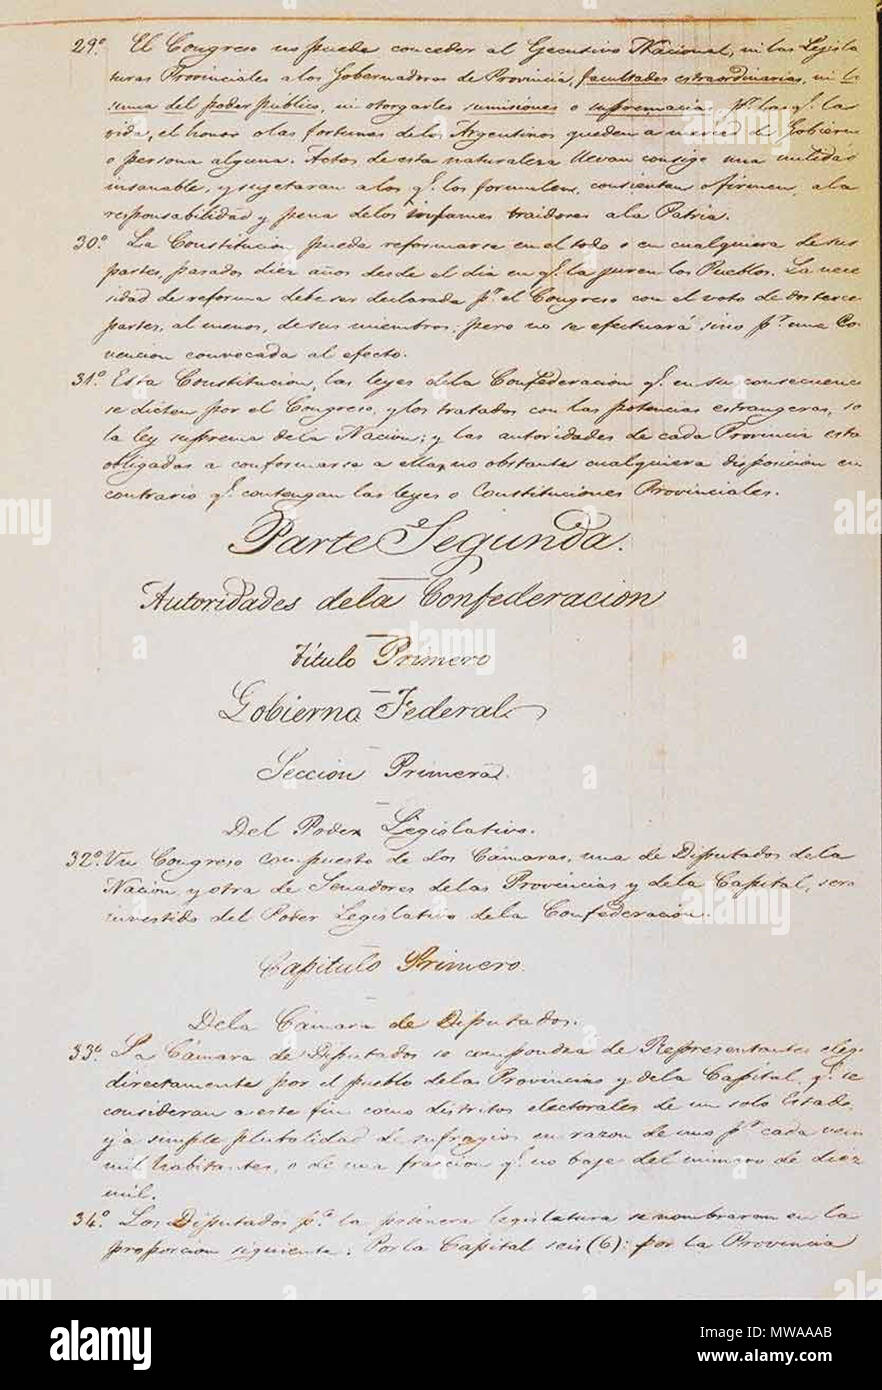 29º. El Congreso no puede conceder al Ejecutivo Nacional, ni las Legisla
turas Provinciales a los Gobernadores de Provincia, facultades extraordinarias, ni la
suma del poder público, ni otorgarles sumisiones o supremacias pr. las qe. la
vida, el honor o las fortunas de los Argentinos queden a merced de Gobierno
o persona alguna. Actos de esta naturaleza llevan consigo una nulidad
insanable, y sujetaran a los qe. los formulen, consientan o firmen, a la
responsabilidad y pena de los infames traidores a la Patria.
30º. La Constitucion puede reformarse en el todo o en cualquiera de sus
partes, pasados diez años desde el dia en qe. la juren los Pueblos. La nece
sidad de reforma debe ser declarada pr. el Congreso con el voto de dos terce
partes, al menos, de sus miembros; pero no se efectuará sino pr. una Co
vencion convocada al efecto.
31º. Esta Constitucion, las leyes dela Confederacion qe. en su consecuenc
se dicten por el Congreso, y los tratados con las potencias estrangeras, so
la ley suprema dela Nacion; y las autoridades de cada Provincia esta
obligadas a conformarse a ella, no obstante cualquiera disposicion en
contrario qe. contengan las leyes o Constituciones Provinciales.
Parte Segunda.
Autoridades dela Confederacion
Título Primero
Gobierno Federal
Seccion Primera.
Del Poder Legislativo.
32º. Un Congreso compuesto de dos Cámaras, una de Diputados dela
Nacion y otra de Senadores delas Provincias y dela Capital, sera
investido del Poder Legislativo dela Confederacion.
Capitulo Primero.
Dela Cámara de Diputados.
33º. La Cámara de Diputados se compondra de Representantes eleg
directamente por el pueblo delas Provincias y dela Capital, qe. se
consideran a este fin como distritos electorales de un solo Estado,
y a simple pluralidad de sufragios en razon de uno pr. cada vein
mil habitantes, o de una fraccion qe. no baje del número de diez
mil.
34º. Los Diputados pa. la primera legislatura se nombraran en la
proporcion siguiente: Por la Capital seis (6): por la Provincia
alamy
Image ID: MWAAAB
www.alamy.com